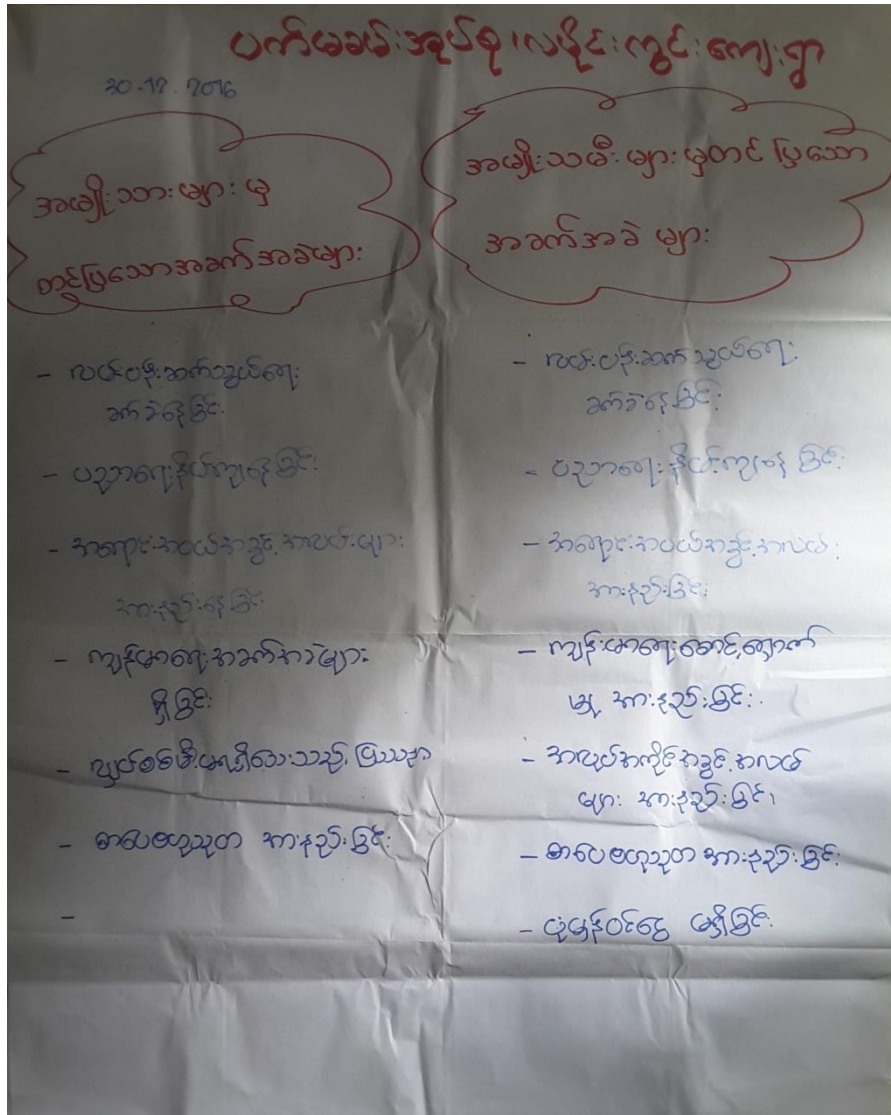 ပက်မခမ်းအုပ်စု၊ လမိုင်းကွင်းကျေးရွာ
30.12.2016
အမျိုးသားများမှ
တင်ပြသောအခက်အခဲများ
- လမ်းပန်းဆက်သွယ်ရေး
ခက်ခဲနေခြင်း
- ပညာရေးနိမ့်ကျနေခြင်း
- အရောင်းအဝယ်အခွင့်အလမ်းများ
အားနည်းနေခြင်း
- ကျန်းမာရေးအခက်အခဲများ
ရှိခြင်း
- လျှပ်စစ်မီးမရှိသေးသည့် ပြဿနာ
- ဗာလဗဟုသုတ အားနည်းခြင်း
-
အမျိုးသမီးများမှတင်ပြသော
အခက်အခဲ များ
- လမ်းပန်းဆက်သွယ်ရေး
ခက်ခဲနေခြင်း
- ပညာရေးနိမ့်ကျနေခြင်း
- အရောင်းအဝယ်အခွင့်အလမ်း
အားနည်းခြင်း
- ကျန်းမာရေးစောင့်ရှောက်
မှု အားနည်းခြင်း
- အလုပ်အကိုင်အခွင့်အလမ်
များ အားနည်းခြင်း၊
- ဗာလဗဟုသုတ အားနည်းခြင်း
- ပုံမှန်ဝင်ငွေ မရှိခြင်း